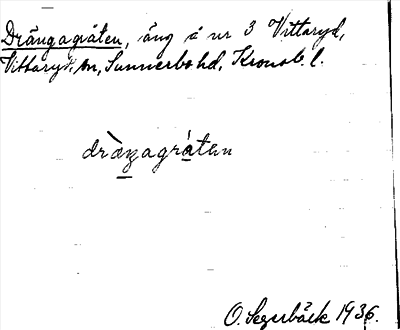 Drängagråten, äng å nr 3 Vittaryd,
Vittaryds sn, Sunnerbo hd, Kronob. l.
dràŋagrátən
O. Segerbäck 1936.